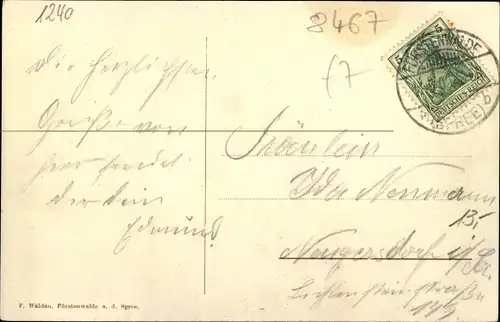 1240
8467
f7
5 5
FÜRSTENWALDE
(SPREE)
b
DEUTSCHES REICH
Die herzlichsten
Grüße von
hier sendet
dir dein
Edmund
Fräulein
Ida Neumann
15,-
Neugersdorf i/Sa.
Lichtensteinstraße
F. Waldau, Fürstenwalde a. d. Spree.